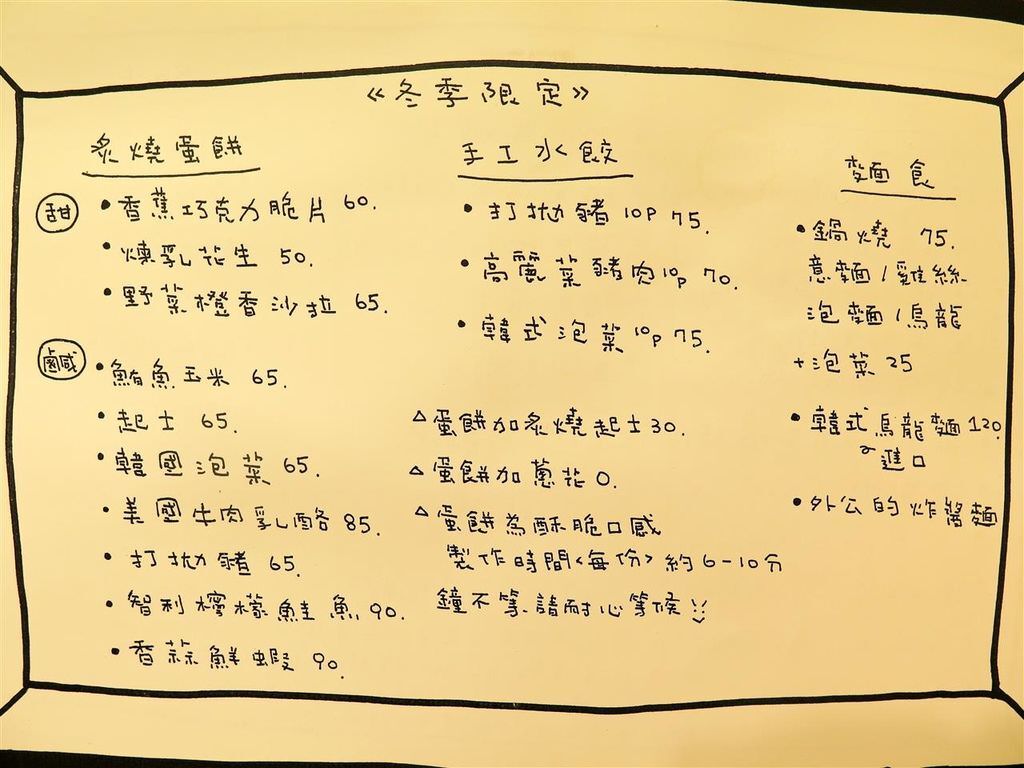 《冬季限定》
炙燒蛋餅
甜
•香蕉巧克力脆片 60.
•煉乳花生 50.
•野菜橙香沙拉 65.
鹹
•鮪魚玉米 65.
•起士 65.
•韓國泡菜 65.
•美國牛肉乳酪 85.
•打拋豬 65.
•智利檸檬鮭魚 90.
•香蒜鮮蝦 90.
手工水餃
•打拋豬 10p 75.
•高麗菜豬肉 10p 70.
•韓式泡菜 10p 75.
△蛋餅加炙燒起士 30.
△蛋餅加蔥花 0.
△蛋餅為酥脆口感
製作時間<每份>約6-10分
鐘不等.請耐心等候!!
麵食
•鍋燒 75.
意麵/雞絲
泡麵/烏龍
+泡菜 25
•韓式烏龍麵 120.
進口
•外公的炸醬麵